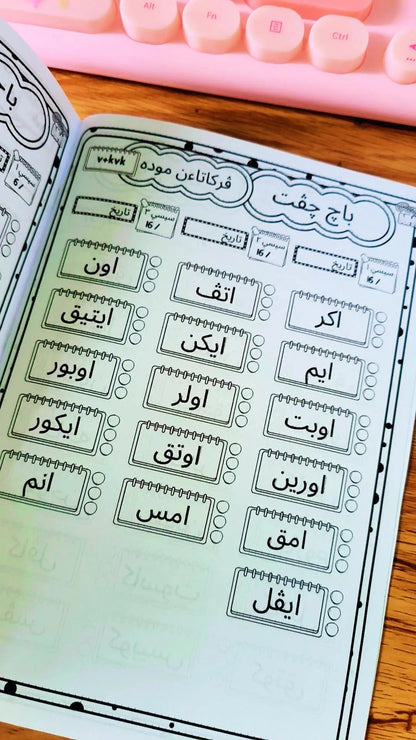 باچ چڤت
ڤرکاتاءن موده
v+kvk
سيسي ١
/ 16
تاريخ
سيسي ٢
/ 16
تاريخ
سيسي ٣
/ 16
تاريخ
اکر
اتڤ
اون
ايم
ايکن
ايتيق
اوبت
اولر
اوبور
اورين
اوتق
ايکور
امق
امس
انم
ايڤل
Alt
Fn
Ctrl